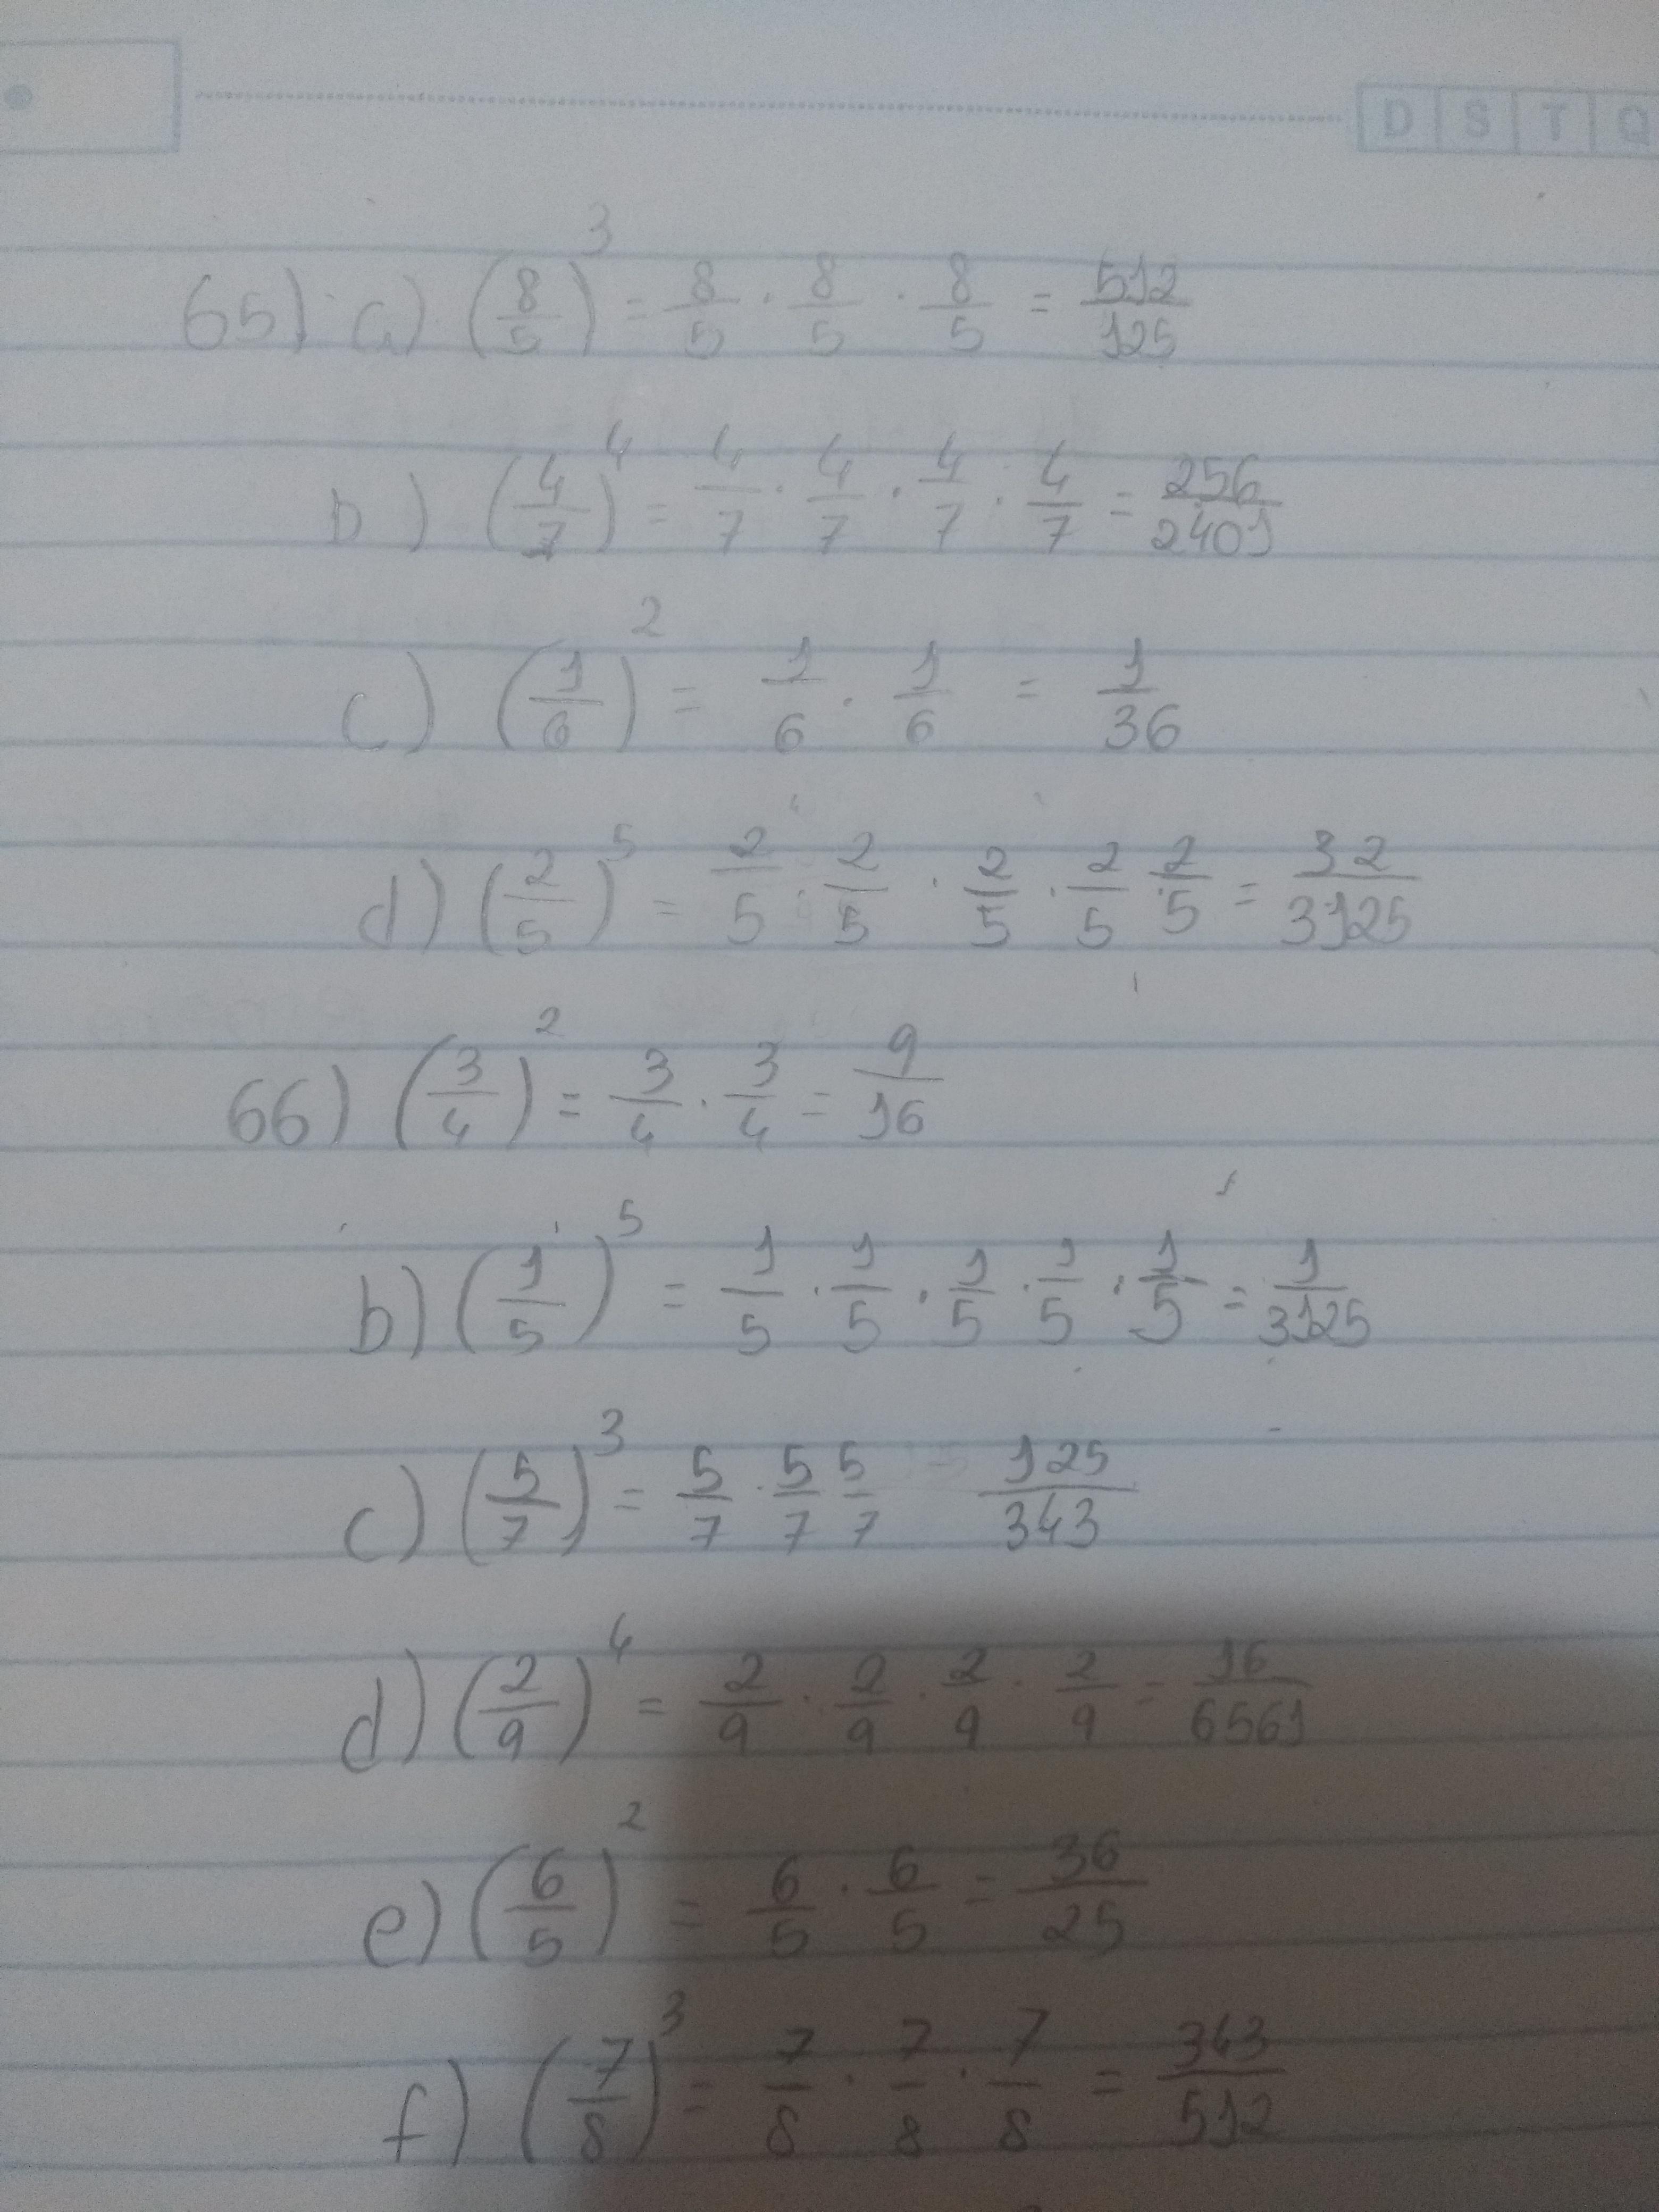 D S T Q
65) a) (8/5)^3 = 8/5 . 8/5 . 8/5 = 512/125
b) (4/7)^4 = 4/7 . 4/7 . 4/7 . 4/7 = 256/2401
c) (1/6)^2 = 1/6 . 1/6 = 1/36
d) (2/5)^5 = 2/5 . 2/5 . 2/5 . 2/5 . 2/5 = 32/3125
66) (3/4)^2 = 3/4 . 3/4 = 9/16
b) (1/5)^5 = 1/5 . 1/5 . 1/5 . 1/5 . 1/5 = 1/3125
c) (5/7)^3 = 5/7 . 5/7 5/7 125/343
d) (2/9)^4 = 2/9 . 2/9 . 2/9 . 2/9 = 16/6561
e) (6/5)^2 = 6/5 . 6/5 = 36/25
f) (7/8)^3 = 7/8 . 7/8 . 7/8 = 343/512